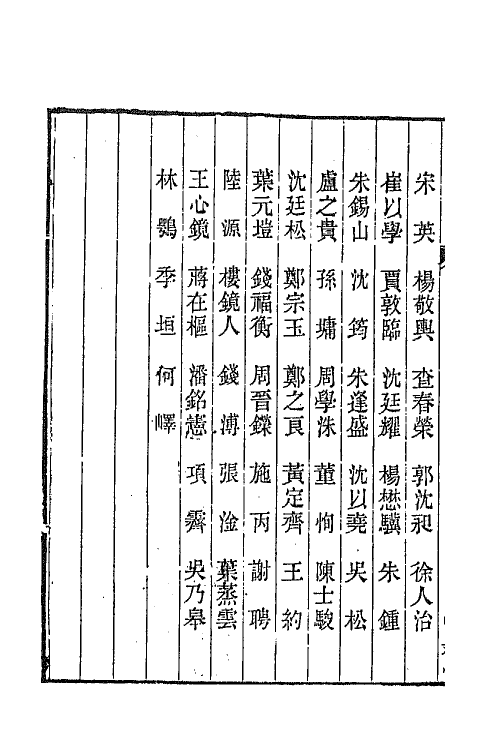 宋英 楊敬輿 查春榮 郭沈昶 徐人治
崔以學 賈敦臨 沈廷耀 楊懋驥 朱鍾
朱錫山 沈筠 朱逢盛 沈以堯 吳松
盧之貴 孫墉 周學洙 董恂 陳士駿
沈廷松 鄭宗玉 鄭之良 黃定齊 王約
葉元塏 錢福衡 周晋鑅 施丙 謝聘
陸源 樓鏡人 錢溥 張淦 葉蒸雲
王心鏡 蔣在樞 潘銘憲 項霽 吳乃皋
林鶚 季垣 何嶧